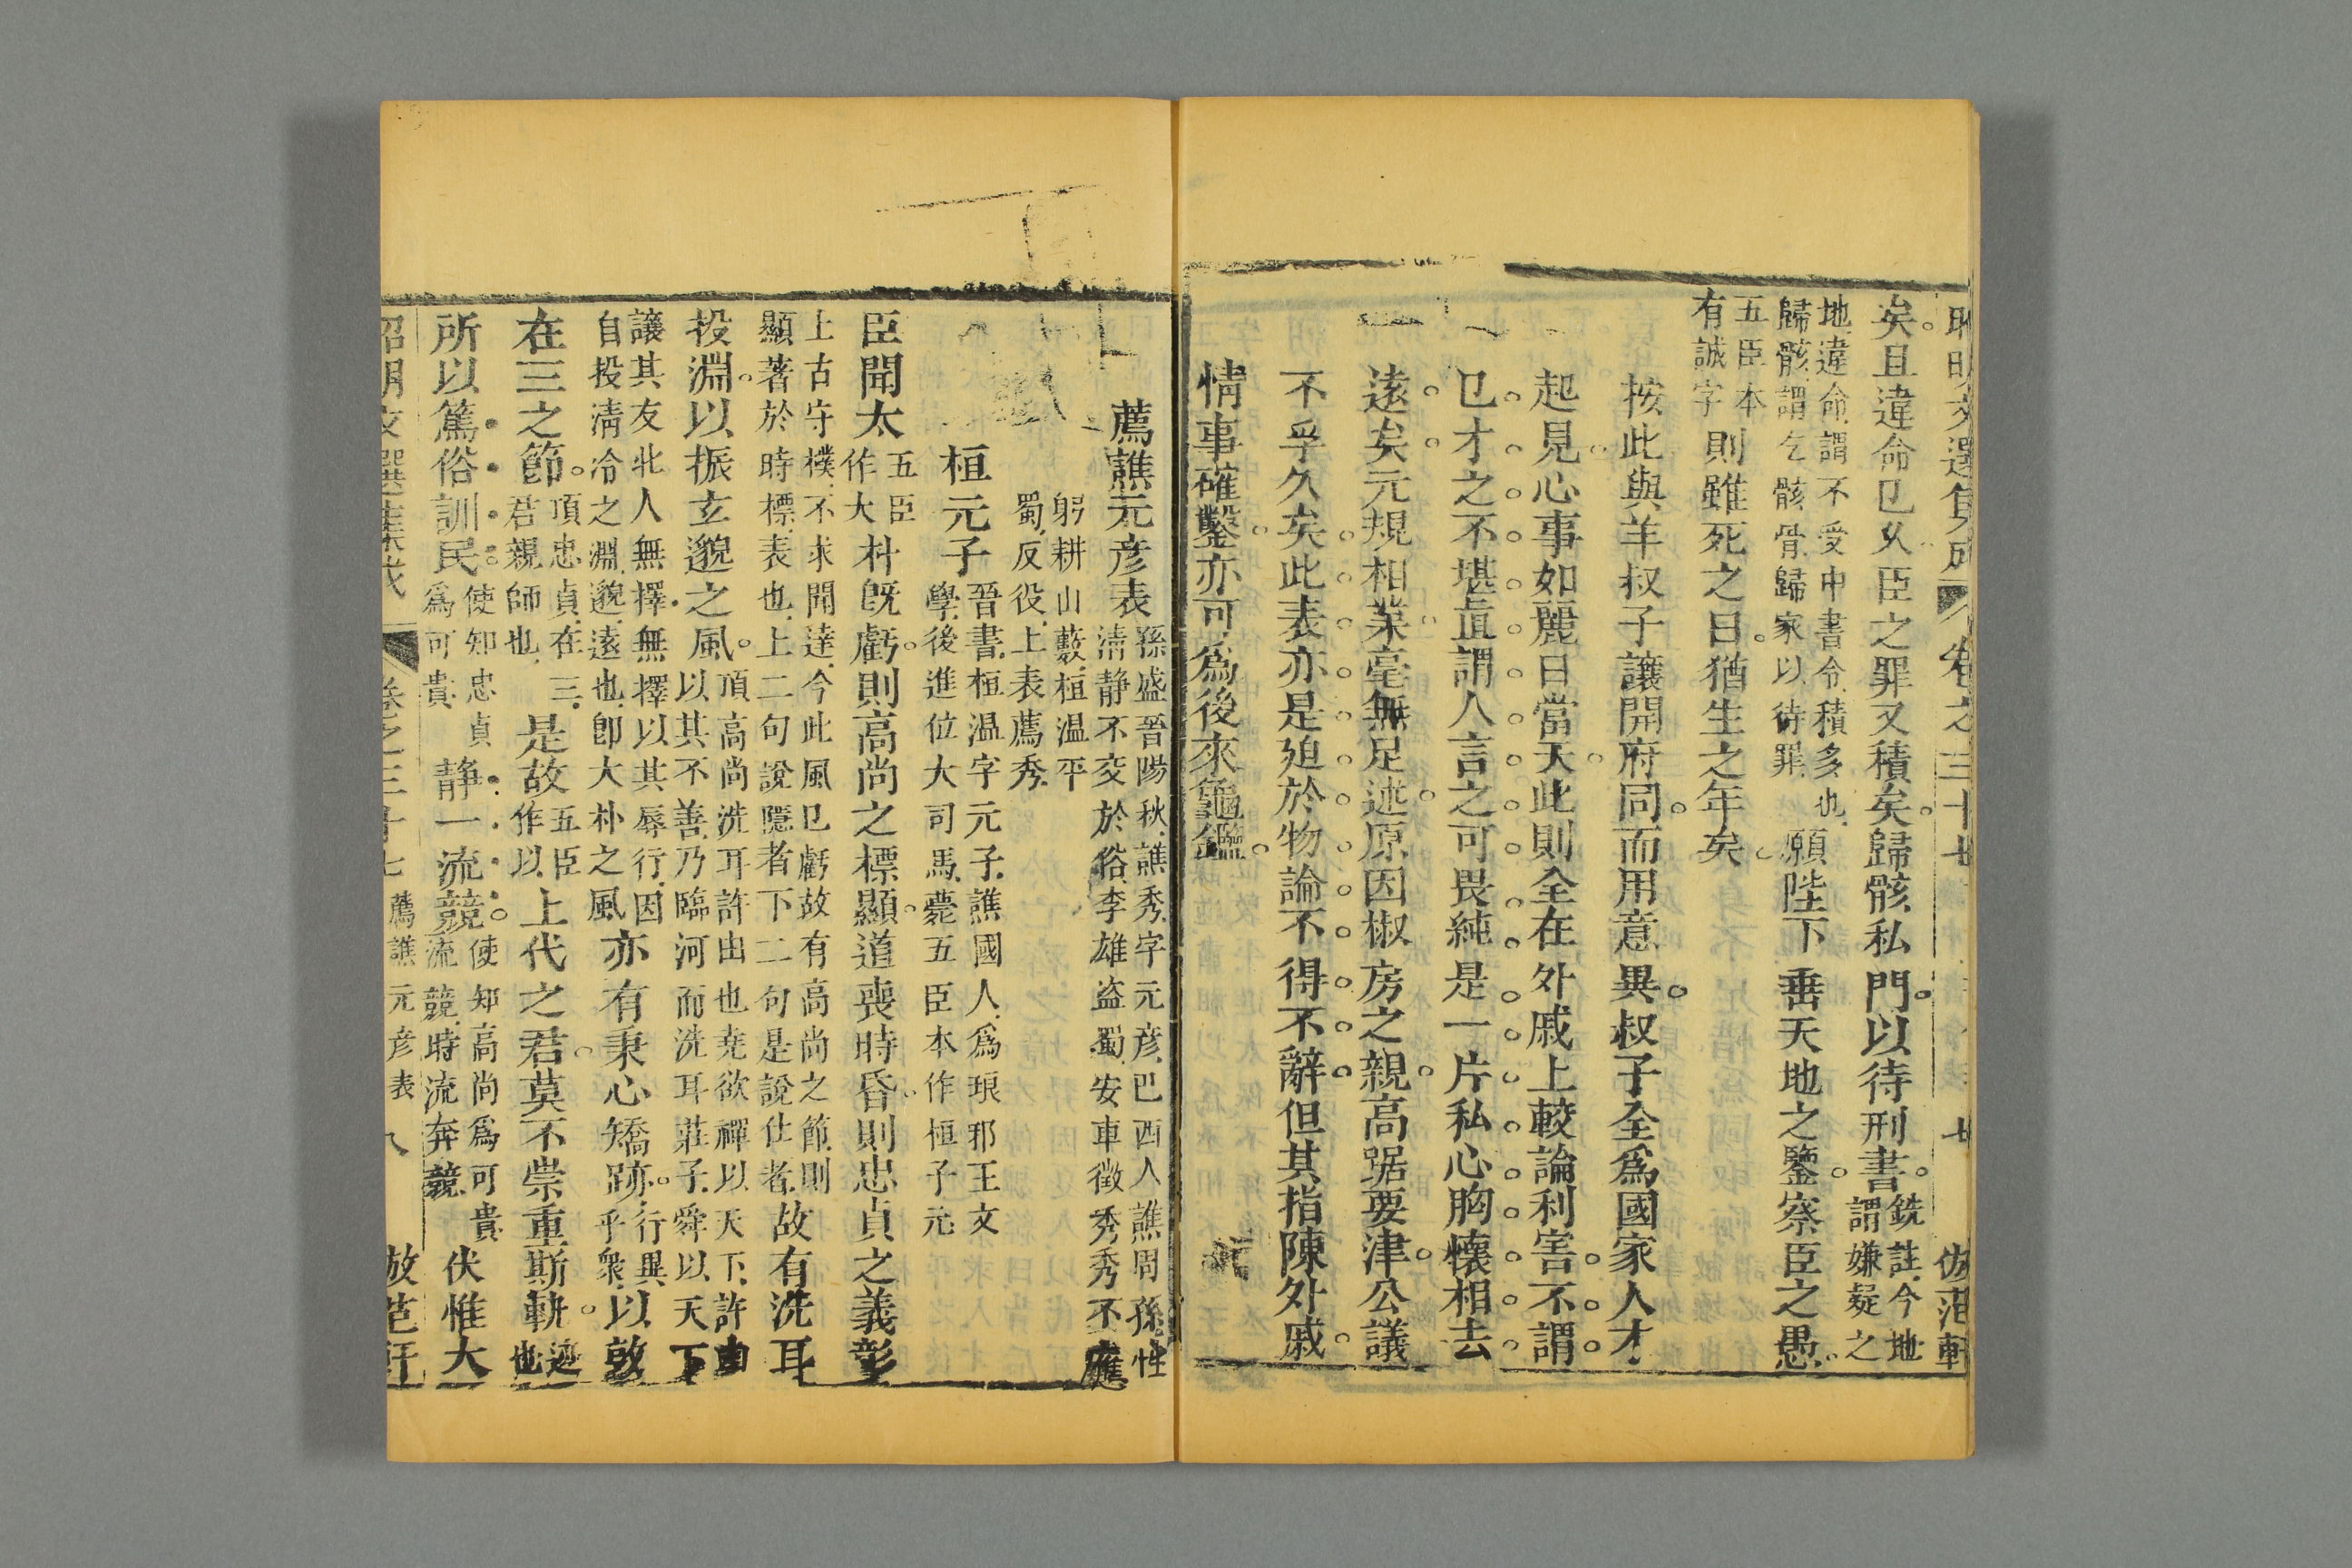 昭明文選集成 卷之三十七 七 倣范軒
矣且違命已久臣之罪又積矣歸骸私門以待刑書銑註今地謂嫌疑之
地違命謂不受中書令積多也歸骸謂乞骸骨歸家以待罪願陛下垂天地之鑒察臣之愚
五臣本有誠字則雖死之日猶生之年矣
按此與羊叔子讓開府同而用意異叔子全為國家人才
起見心事如麗日當天此則全在外戚上較論利害不謂
已才之不堪直謂人言之可畏純是一片私心胸懷相去
遠矣元規相業毫無足述原因椒房之親高踞要津公議
不孚久矣此表亦是廹於物論不得不辭但其指陳外戚
情事確鑿亦可為後來龜鑑
薦譙元彥表孫盛晉陽秋譙秀字元彥巴西人譙周孫性清静不交於俗李雄盗蜀安車徵秀秀不應
躬耕山藪桓温平蜀反役上表薦秀
桓元子晉書桓温字元子譙國人為琅邪王文學後進位大司馬薨五臣本作桓子元
臣聞太五臣作大朴既虧則高尚之標顯道喪時昏則忠貞之義彰
上古守樸不求聞達今此風已虧故有高尚之節則顯著於時標表也上二句說隱者下二句是說仕者故有洗耳
投淵以振玄邈之風頂高尚洗耳許由也堯欲禪以天下許由以其不善乃臨河而洗耳莊子舜以天下
讓其友北人無擇無擇以其辱行因自投清泠之淵邈遠也即大朴之風亦有秉心矯跡行異乎衆以敦
在三之節頂忠貞在三君親師也是故五臣作以上代之君莫不崇重斯軌迹也
所以篤俗訓民使知忠貞為可貴静一流競使知高尚為可貴流競時流奔競伏惟大
昭明文選集成 卷之三十七 薦譙元彥表 八 倣范軒